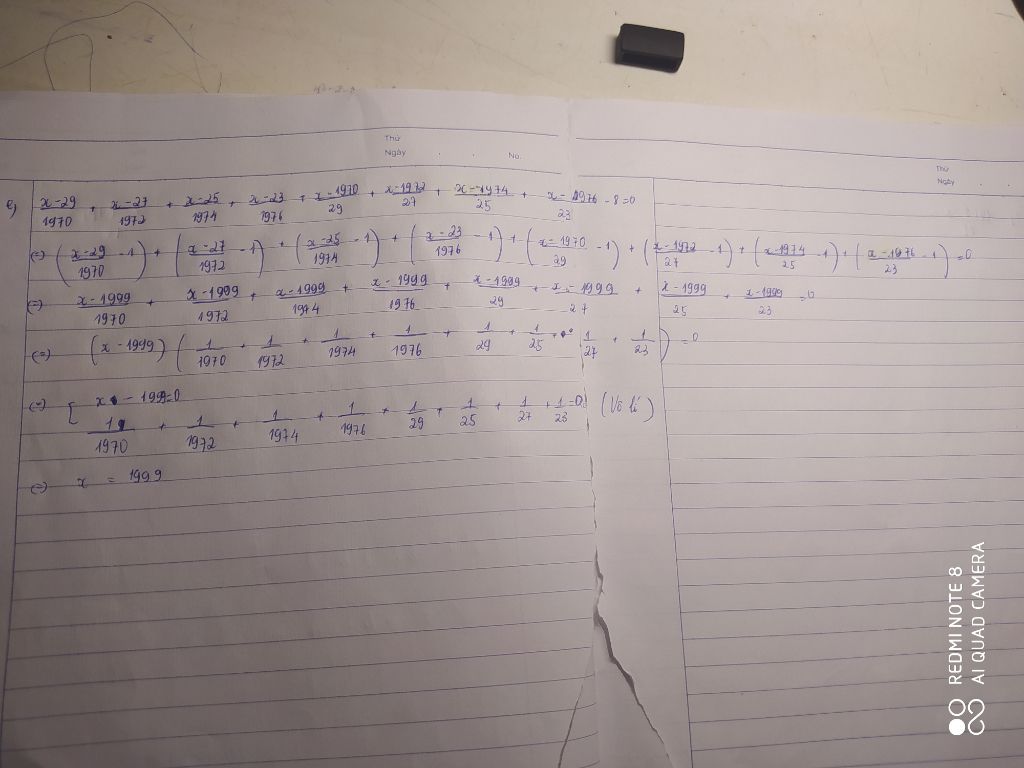 Thứ
Ngày . . No.
Thứ
Ngày . .
e) \frac{x-29}{1970} + \frac{x-27}{1972} + \frac{x-25}{1974} + \frac{x-23}{1976} + \frac{x-1970}{29} + \frac{x-1972}{27} + \frac{x-1974}{25} + \frac{x-1976}{23} - 8 = 0
(=) (\frac{x-29}{1970} - 1) + (\frac{x-27}{1972} - 1) + (\frac{x-25}{1974} - 1) + (\frac{x-23}{1976} - 1) + (\frac{x-1970}{29} - 1) + (\frac{x-1972}{27} - 1) + (\frac{x-1974}{25} - 1) + (\frac{x-1976}{23} - 1) = 0
(=) \frac{x-1999}{1970} + \frac{x-1999}{1972} + \frac{x-1999}{1974} + \frac{x-1999}{1976} + \frac{x-1999}{29} + \frac{x-1999}{27} + \frac{x-1999}{25} + \frac{x-1999}{23} = 0
(=) (x-1999) (\frac{1}{1970} + \frac{1}{1972} + \frac{1}{1974} + \frac{1}{1976} + \frac{1}{29} + \frac{1}{25} + \frac{1}{27} + \frac{1}{23}) = 0
(=) [ x - 1999 = 0
\frac{1}{1970} + \frac{1}{1972} + \frac{1}{1974} + \frac{1}{1976} + \frac{1}{29} + \frac{1}{25} + \frac{1}{27} + \frac{1}{23} = 0 (Vô lí)
(=) x = 1999
REDMI NOTE 8
AI QUAD CAMERA